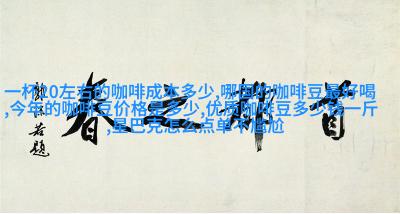 一杯20左右的咖啡成本多少,哪国的咖啡豆最好喝
,今年的咖啡豆价格是多少,优质咖啡豆多少钱一斤
,星巴克怎么点单不尴尬
首都之春
郭沫若題